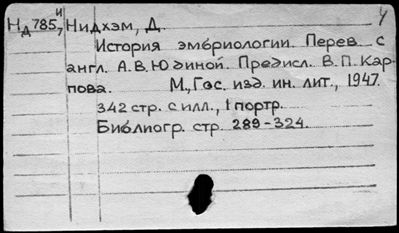 и У
Нд 785, Нидхэм, Д.
История эмбриологии. Перев. с
англ. А.В.Юдиной. Предисл. В.П.Кар-
пова. М., Гос. изд. ин. лит., 1947.
342 стр. с илл., 1 портр.
Библиогр. стр. 289-324.